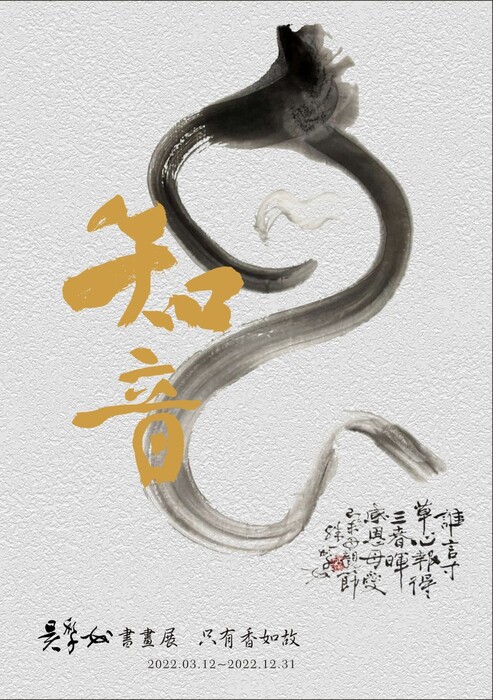 知音
誰言寸
草心報得
三春暉
感恩母愛
母親節
吳學 書畫展 只有香如故
2022.03.12~2022.12.31